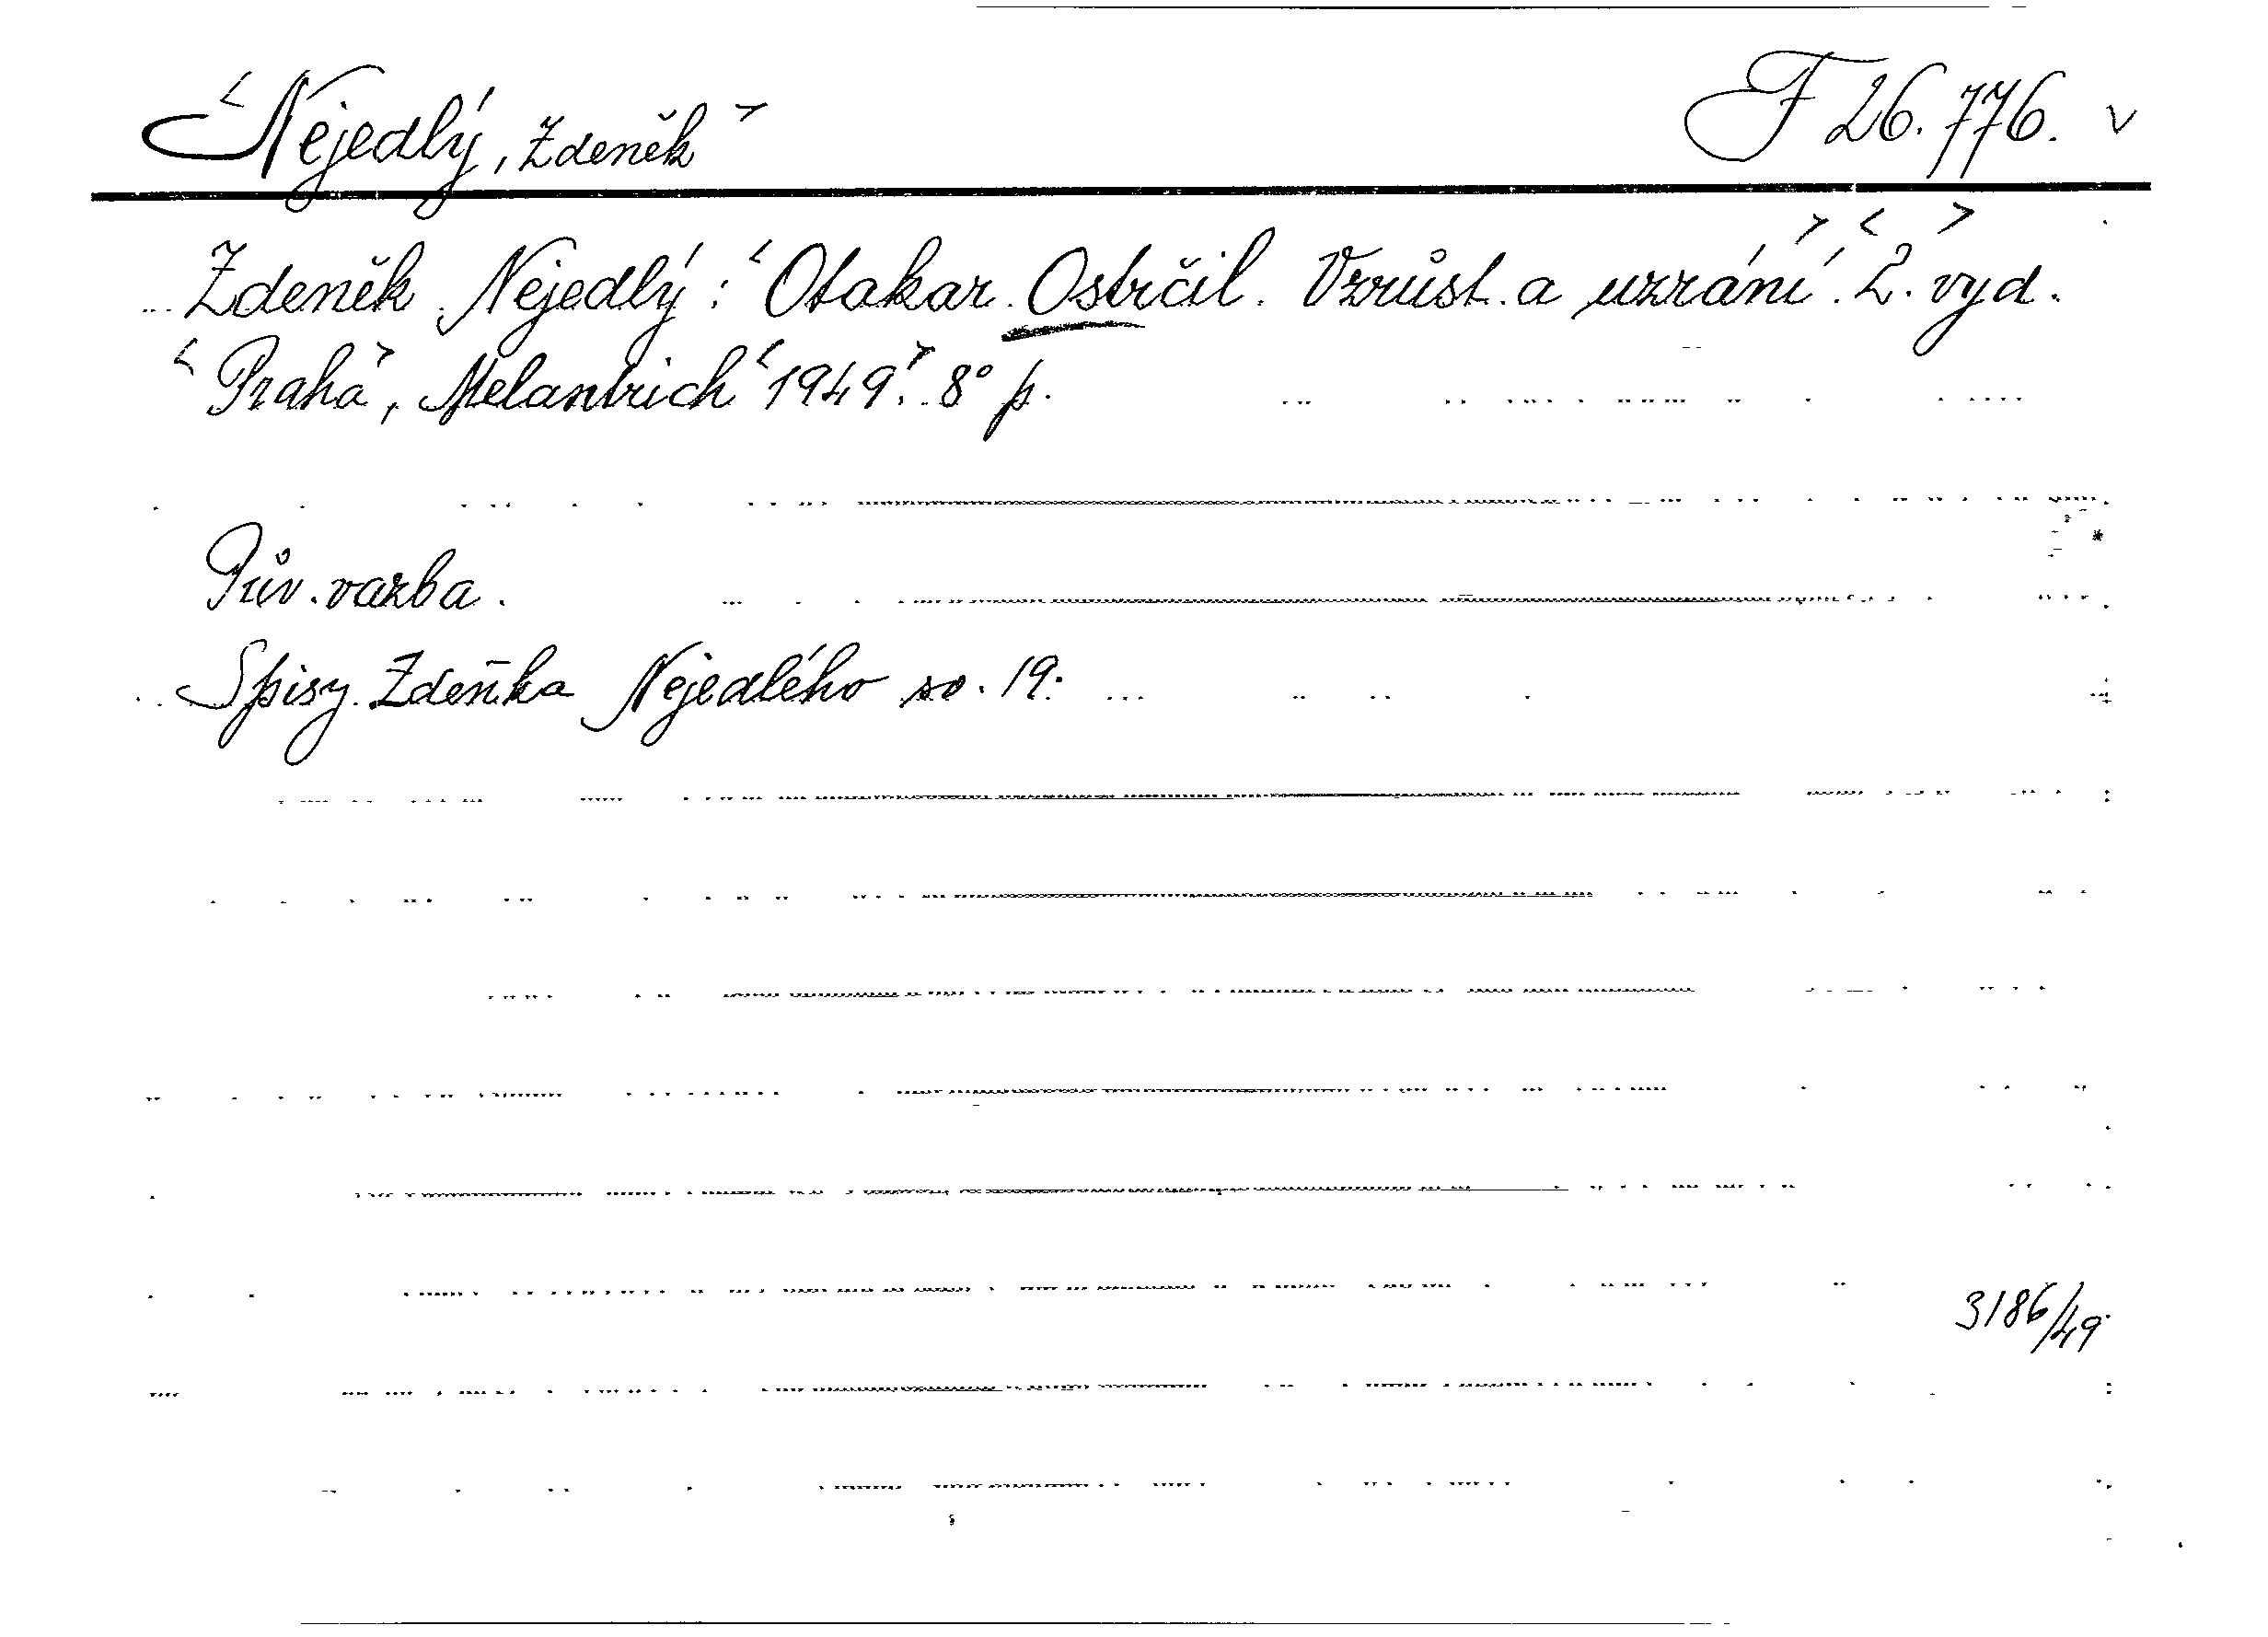 <Nejedlý, Zdeněk> F 26.776. v
Zdeněk Nejedlý: <Otakar Ostrčil. Vzrůst a uzrání>. <2.> vyd.
<Praha>, Melantrich <1949>. 8° p.
Pův. vazba.
Spisy Zdeňka Nejedlého sv. 19.
3186/49